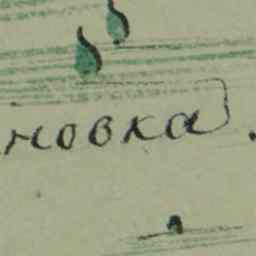 новка.